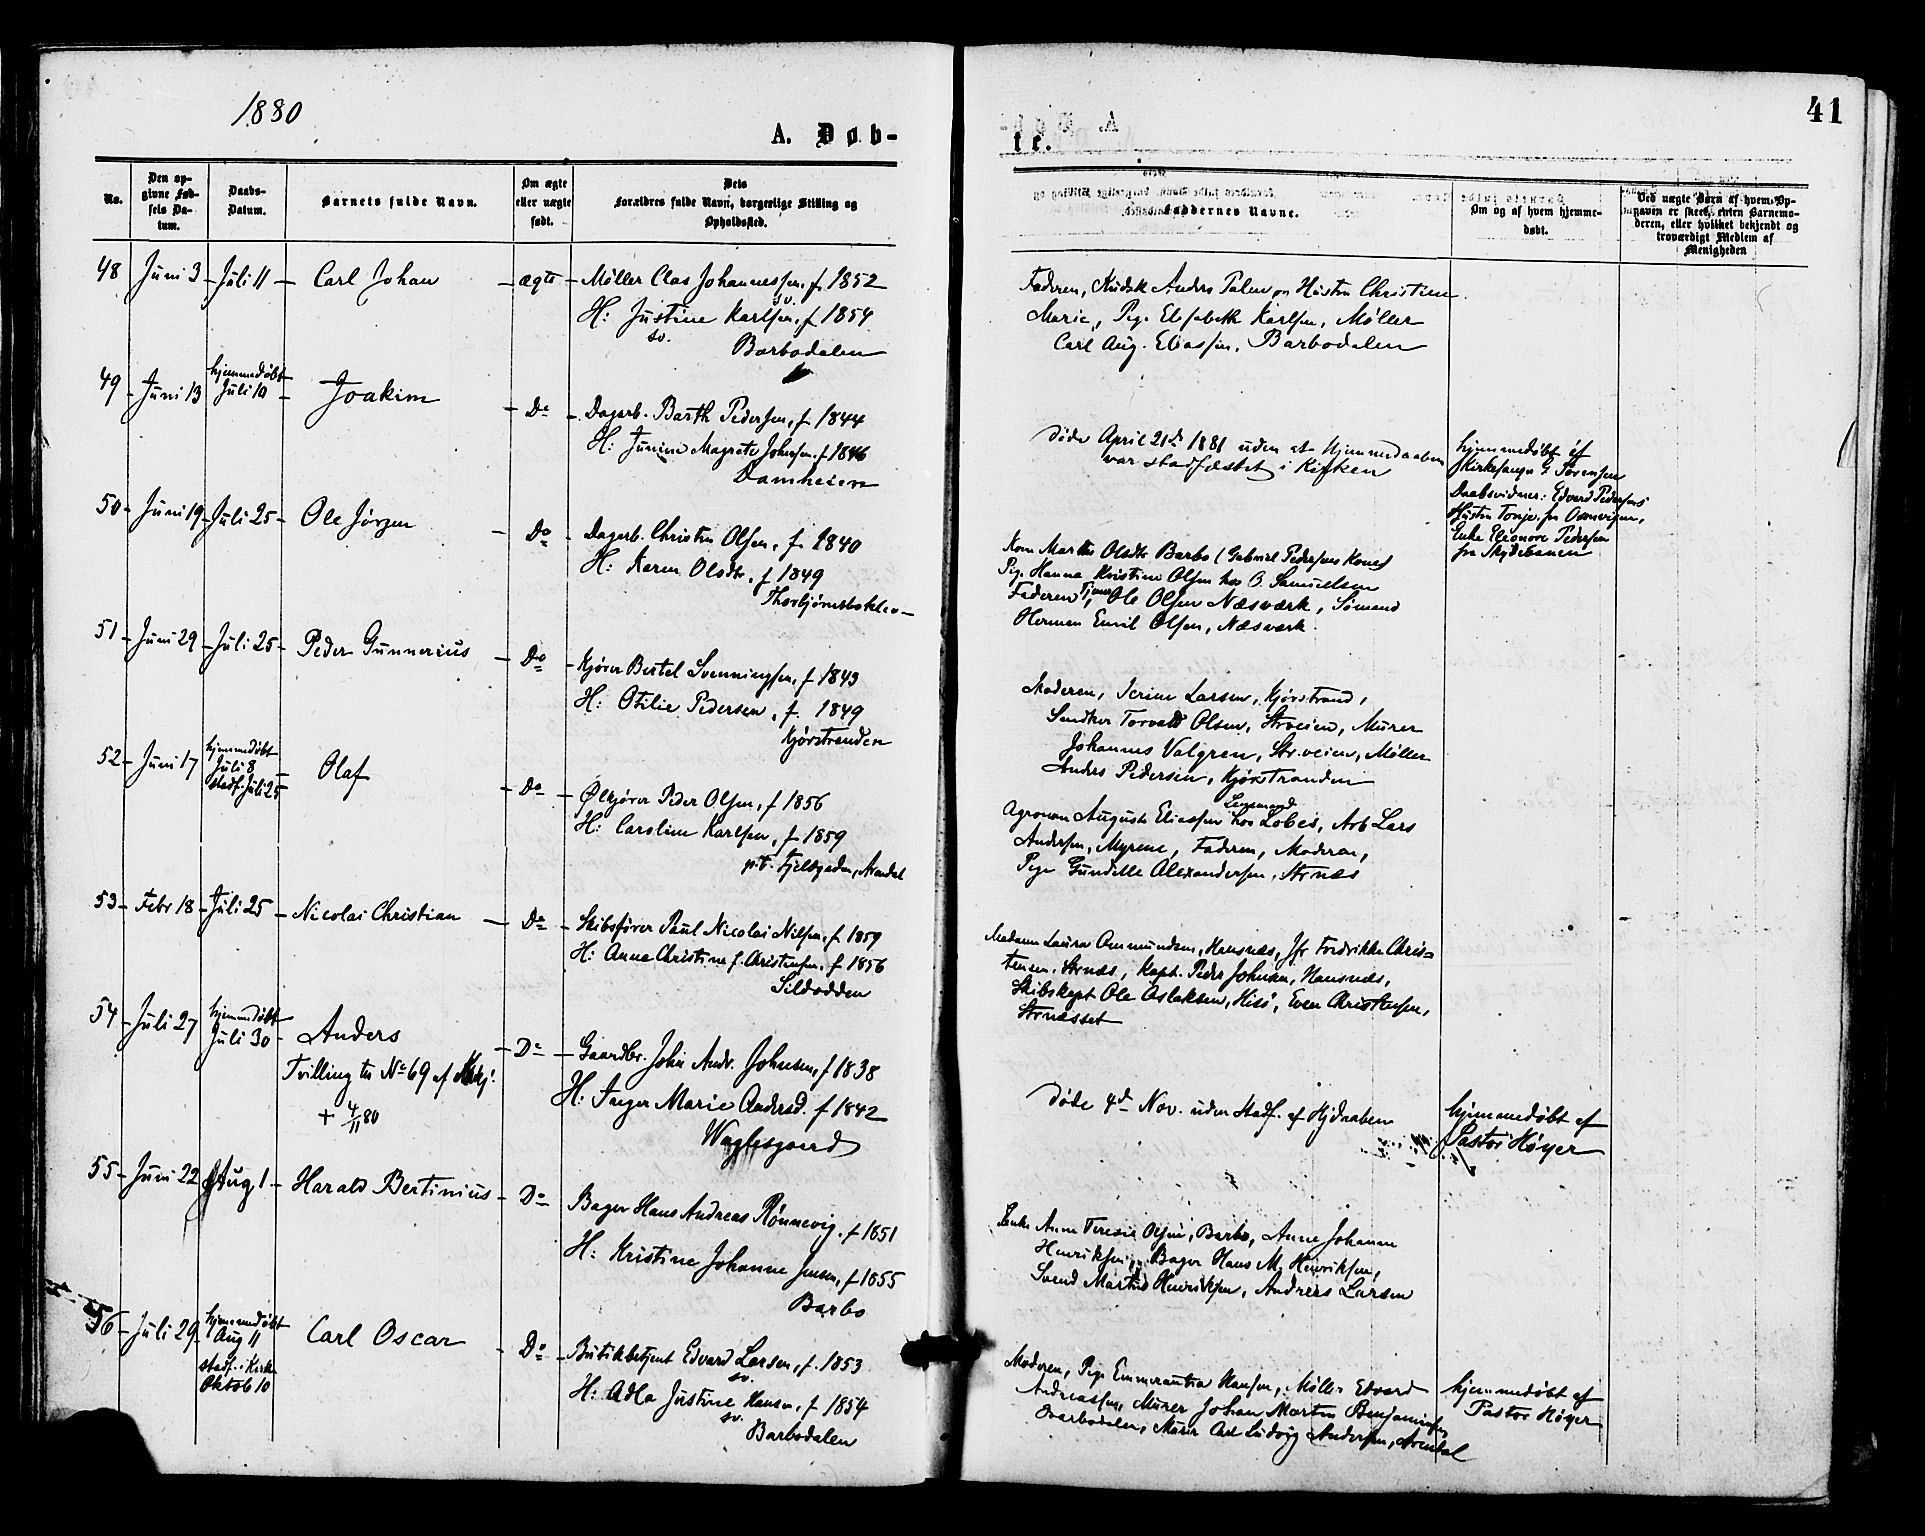 1880
A. Døb-
te.
41
No.
Den op-
givne Fød-
sels Da-
tum.
Daabs-
Datum.
Barnets fulde Navn.
Om ægte
eller uægte
født.
Dets
Forældres fulde Navn, borgerlige Stilling og
Opholdssted.
Faddernes Navne.
Om og af hvem hjemme-
døbt.
Ved uægte Børn af hvem Op-
gavin er skeet, enten Barnemo-
deren, eller hvilket bekjendt og
troværdigt Medlem af
Menigheden
48 Juni 3 Juli 11 Carl Johan ægte Møller Clas Johannessen, f 1852
sv.
H: Justine Karlsen, f 1854
sv.
Barbodalen
Faderen, Anders Palm og Hustru Christine
Marie, Pige Elisabeth Karlsen, Møller
Carl Aug. Eliassen, Barbodalen
49 Juni 13 hjemmedøbt
Juli 10 Joakim Do Dagarb. Barth Pedersen, f 1844
H: Junine Magrete Johnsen, f 1846
Damheien
døde April 21de 1881 uden at Hjemmedaaben
var stadfæstet i Kirken
hjemmedøbt af
Kirkesanger G. Sørensen
Daabsvidner: Edvard Pedersens
Hustru Tonje fra
Enke Eleonore Pedersen
fra Skydebanen
50 Juni 19 Juli 25 Ole Jørgen Do Dagarb. Christen Olsen, f 1840
H: Karen Olsdtr, f 1849
Thorbjørnsbakken
Kone Marthe Olsdtr Barbo (Gabriel Pedersens Kone)
Pige Hanna Kristine Olsen hos O. Samuelsen
Faderen, Ole Olsen Næsværk, Sømand
Herman Emil Olsen, Næsværk.
51 Juni 29 Juli 25 Peder Gunnerius Do Kjører Bertel Svenningsen, f 1843
H: Otilie Pedersen, f. 1849
Kjørstranden
Moderen, Serine Larsen, Kjørstrand,
Snedker Torvald Olsen, Strveien, Murer
Johannes Valgren, Str.veien, Møller
Anders Pedersen, Kjørstranden
52 Juni 17 hjemmedøbt
Juli 8
stadf. Juli 25 Olaf Do Ølkjører Peder Olsen, f 1856
H: Caroline Karlsen, f 1859
p.t. Fjelsgaden, Arendal
Lensmand
Agronom August Eliassen hos Lobes, Arb Lars
Andersen, Myrene, Faderen, Moderen,
Pige Gundelle Alexandersen, Strnæs
53 Febr 18 Juli 25 Nicolai Christian Do Skibsfører Paul Nicolai Nilsen, f 1859
H: Anna Christine f. Christensen, f 1856
Sildodden
Madame Laura Ommundsen, Hansnæs, Jfr Fredrikke Chris-
tensen, Strnæs, Kapt. Peder Johnsen, Hansnæs,
Skibskapt Ole Aslaksen, Hisø, Even Christensen,
Strnæsset
54 Juli 27 hjemmedøbt
Juli 30 Anders
Tvilling til No 69 af Kvkj.
+ 4/11 80 Do Gaardbr. John Andr. Johnsen, f 1838
H: Inger Marie Andersd. f 1842
Waglesgaard
døde 4de Nov. uden Stadf. af Hjdaaben
hjemmedøbt af
Pastor Høyer
55 Juni 22 Aug 1 Harald Bertinius Do Bager Hans Andreas Rønnevig, f 1851
H: Kristine Johanne Jensen, f 1855
Barbo
Enke Anne Teresie Olsen, Barbo, Anne Johanne
Henriksen, Bager Hans M. Henriksen,
Svend Martin Henriksen, Andreas Larsen
56 Juli 29 hjemmedøbt
Aug 11
stadf. i Kirke
Oktob 10 Carl Oscar Do Butikbetjent Edvard Larsen, f. 1853
sv.
H: Adla Justine Hansen, f 1854
sv.
Barbodalen
Moderen, Pige Emmerantia Hansen, Møller Edvard
Andreassen, Murer Johan Martin Benjaminsen
Barbodalen, Murer Carl Ludvig Andersen, Arendal
hjemmedøbt af
Pastor Høyer